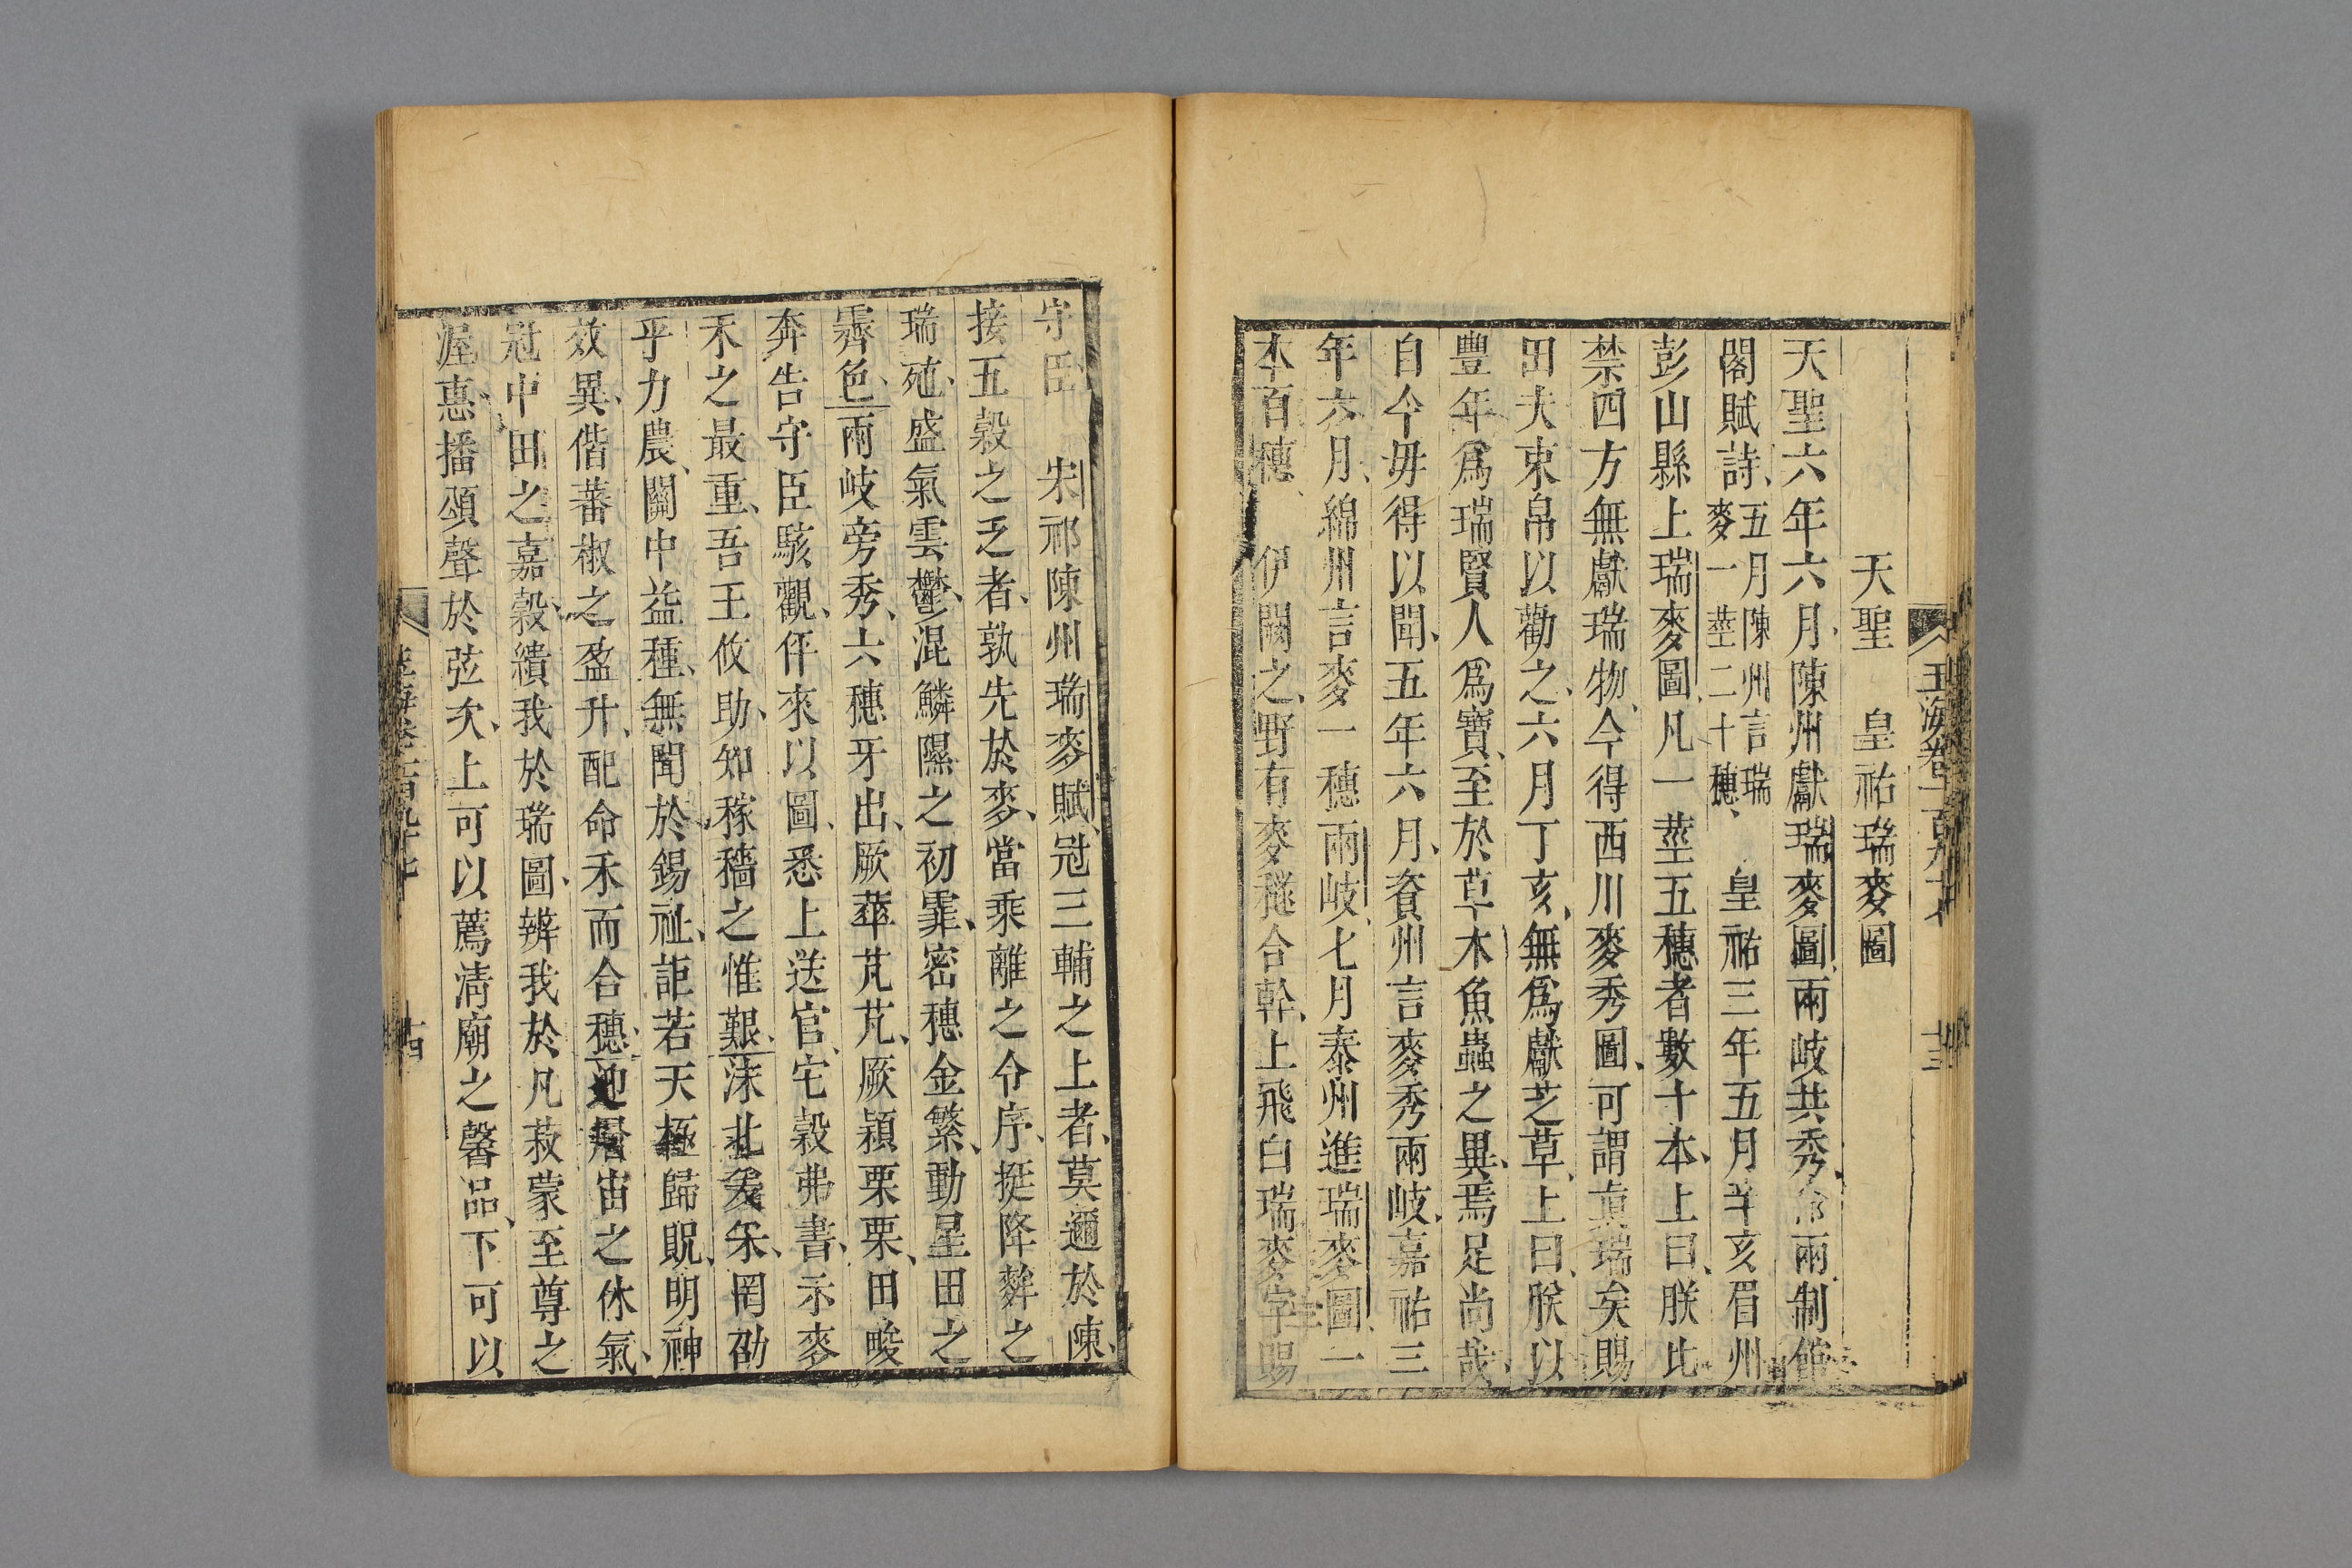 天聖 皇祐瑞麥圖
天聖六年六月陳州獻瑞麥圖兩岐共秀令兩制館
閣賦詩五月陳州言瑞麥一莖二十穗 皇祐三年五月辛亥眉州
彭山縣上瑞麥圖凡一莖五穗者數十本上曰朕比
禁四方無獻瑞物今得西川麥秀圖可謂真瑞矣賜
田夫束帛以勸之六月丁亥無為獻芝草上曰朕以
豐年爲瑞賢人爲寶至於草木魚蟲之異焉足尚哉
自今毋得以聞五年六月資州言麥秀兩岐嘉祐三
年六月綿州言麥一穗兩岐七月泰州進瑞麥圖一
本百穗 伊闕之野有麥穟合幹上飛白瑞麥字賜
守臣 宋祁陳州瑞麥賦冠三輔之上者莫邇於陳
接五穀之乏者孰先於麥當乘離之令序挺降麰之
瑞殖盛氣雲鬱混鱗隰之初霏密穗金繁動星田之
霽色兩岐旁秀六穗牙出厥華芃芃厥穎栗栗田畯
奔告守臣駭觀伻來以圖悉上送官宅穀弗書示麥
禾之最重吾王攸助知稼穡之惟艱沬北爰采罔劭
乎力農關中益種無聞於錫祉詎若天極歸貺明神
效異偕蕃椒之盈升配命禾而合穗迎層宙之休氣
冠中田之嘉穀繢我於瑞圖辨我於凡菽蒙至尊之
渥惠播頌聲於弦次上可以薦清廟之馨品下可以